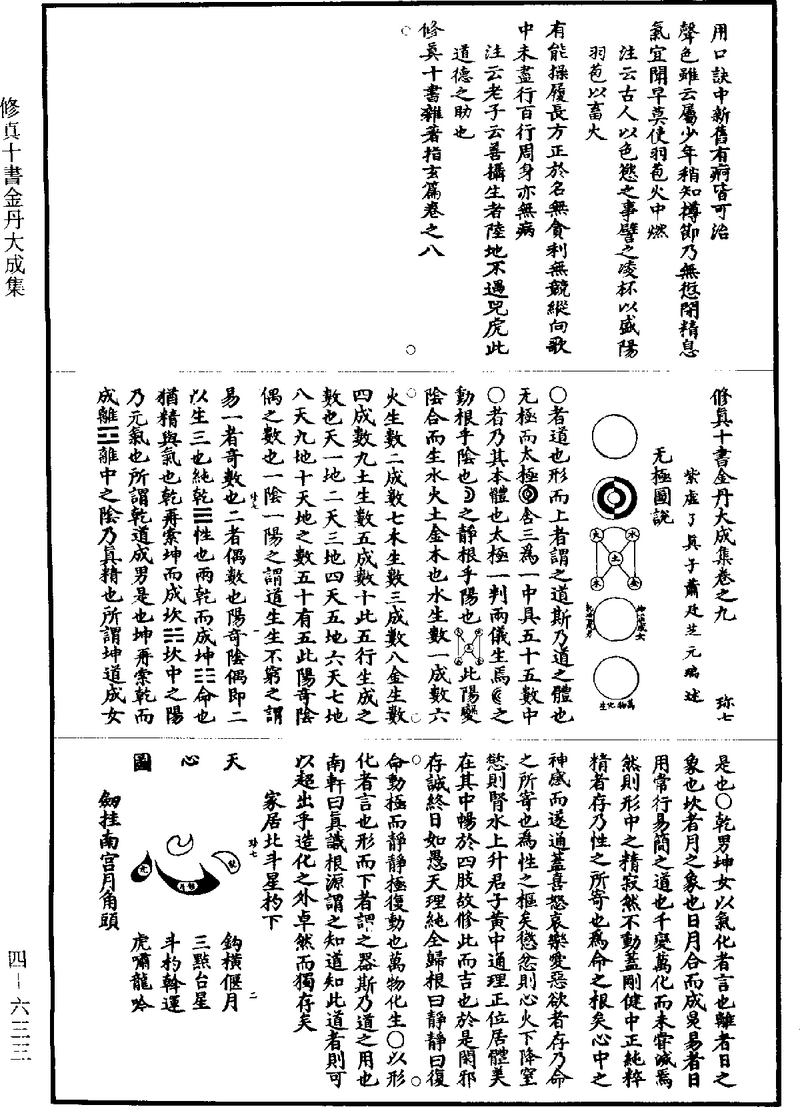 修真十書金丹大成集
四-六三三
用口訣中新舊有痾皆可治
聲色雖云屬少年稍知樽節乃無愆閉精息
氣宜聞早莫使羽苞火中燃
注云古人以色慾之事譬之凌杯以盛陽
羽苞以畜火
有能操履長方正於名無貪利無競縱向歌
中未盡行百行周身亦無病
注云老子云善攝生者陸地不遇兕虎此
道德之助也
修真十書雜著指玄篇卷之八
修真十書金丹大成集卷之九 珎七
紫虛了真子蕭廷芝元瑞述
无極圖說
火
水
土
木
金
坤道成女
乾道成男
萬物化生
○者道也形而上者謂之道斯乃道之體也
无極而太極含三為一中具五十五數中
○者乃其本體也太極一判兩儀生焉之
動根乎陰也之靜根乎陽也此陽變
陰合而生水火土金木也水生數一成數六
火生數二成數七木生數三成數八金生數
四成數九土生數五成數十此五行生成之
數也天一地二天三地四天五地六天七地
八天九地十天地之數五十有五此陽奇陰
偶之數也一陰一陽之謂道生生不窮之謂
易一者奇數也二者偶數也陽奇陰偶即二
以生三也純乾☰性也兩乾而成坤☷命也
猶精與氣也乾再索坤而成坎☵坎中之陽
乃元氣也所謂乾道成男是也坤再索乾而
成離☲離中之陰乃真精也所謂坤道成女
是也○乾男坤女以氣化者言也離者日之
象也坎者月之象也日月合而成易易者日
用常行易簡之道也千變萬化而未嘗滅焉
然則形中之精寂然不動蓋剛健中正純粹
精者存乃性之所寄也為命之根矣心中之
神感而遂通蓋喜怒哀樂愛惡欲者存乃命
之所寄也為性之樞矣懲忿則心火下降窒
慾則腎水上升君子黃中通理正位居體美
在其中暢於四肢故修此而吉也於是閑邪
存誠終日如愚天理純全歸根曰靜靜曰復
命動極而靜靜極復動也萬物化生○以形
化者言也形而下者謂之器斯乃道之用也
南軒曰真識根源謂之知道知此道者則可
以超出乎造化之外卓然而獨存矣
家居北斗星杓下
天心圖
鈎橫偃月
三點台星
斗杓斡運
虎嘯龍吟
劔挂南宮月角頭